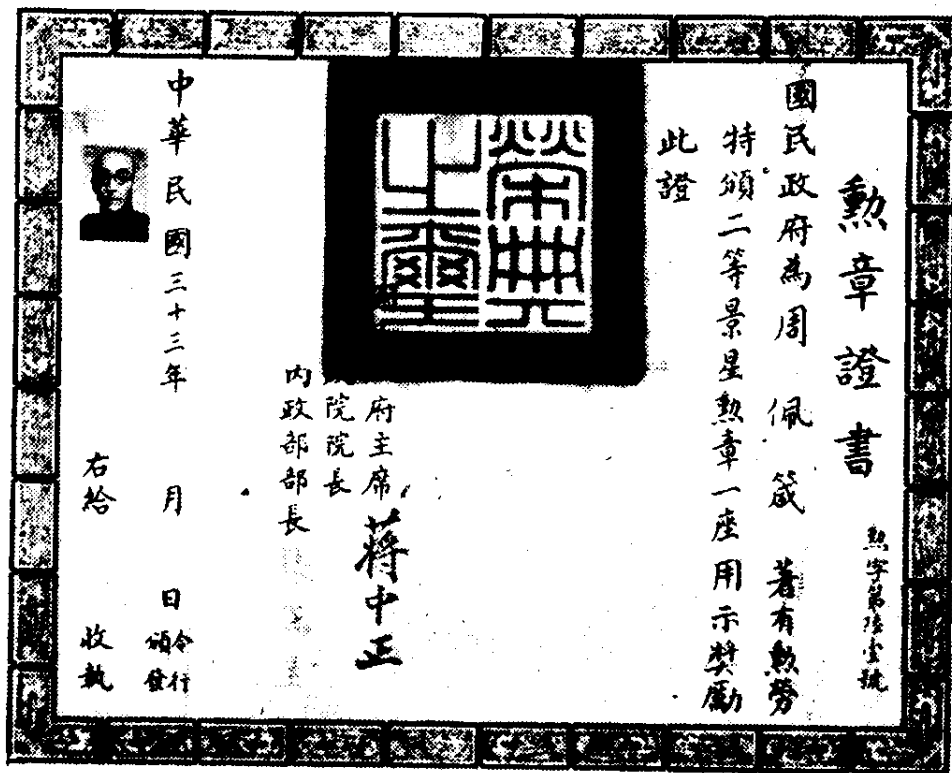 勲章證書
勲字第陸壹號
國民政府為周佩箴著有勲勞
特頒二等景星勲章一座用示獎勵
此證
榮典之璽
府主席蔣中正
院院長
内政部部長
中華民國三十三年 月 日令行頒發
右給 收執